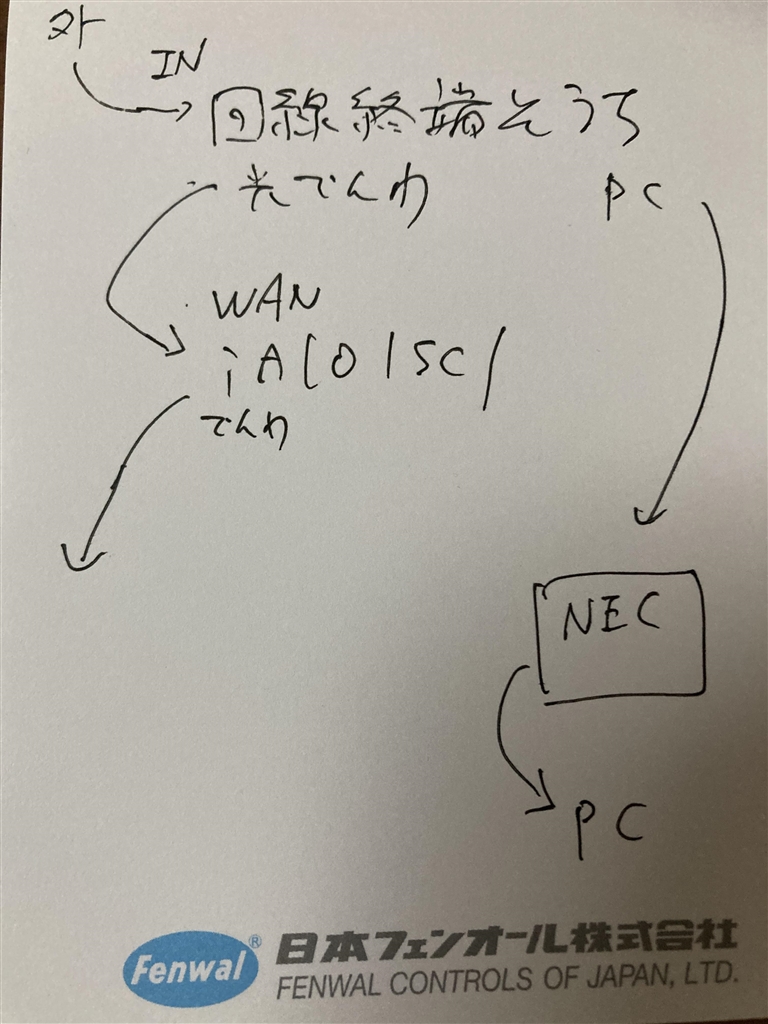 外
IN
回線終端そうち
光でんわ
PC
WAN
でんわ
NEC
PC
Fenwal® 日本フェンオール株式会社
FENWAL CONTROLS OF JAPAN, LTD.